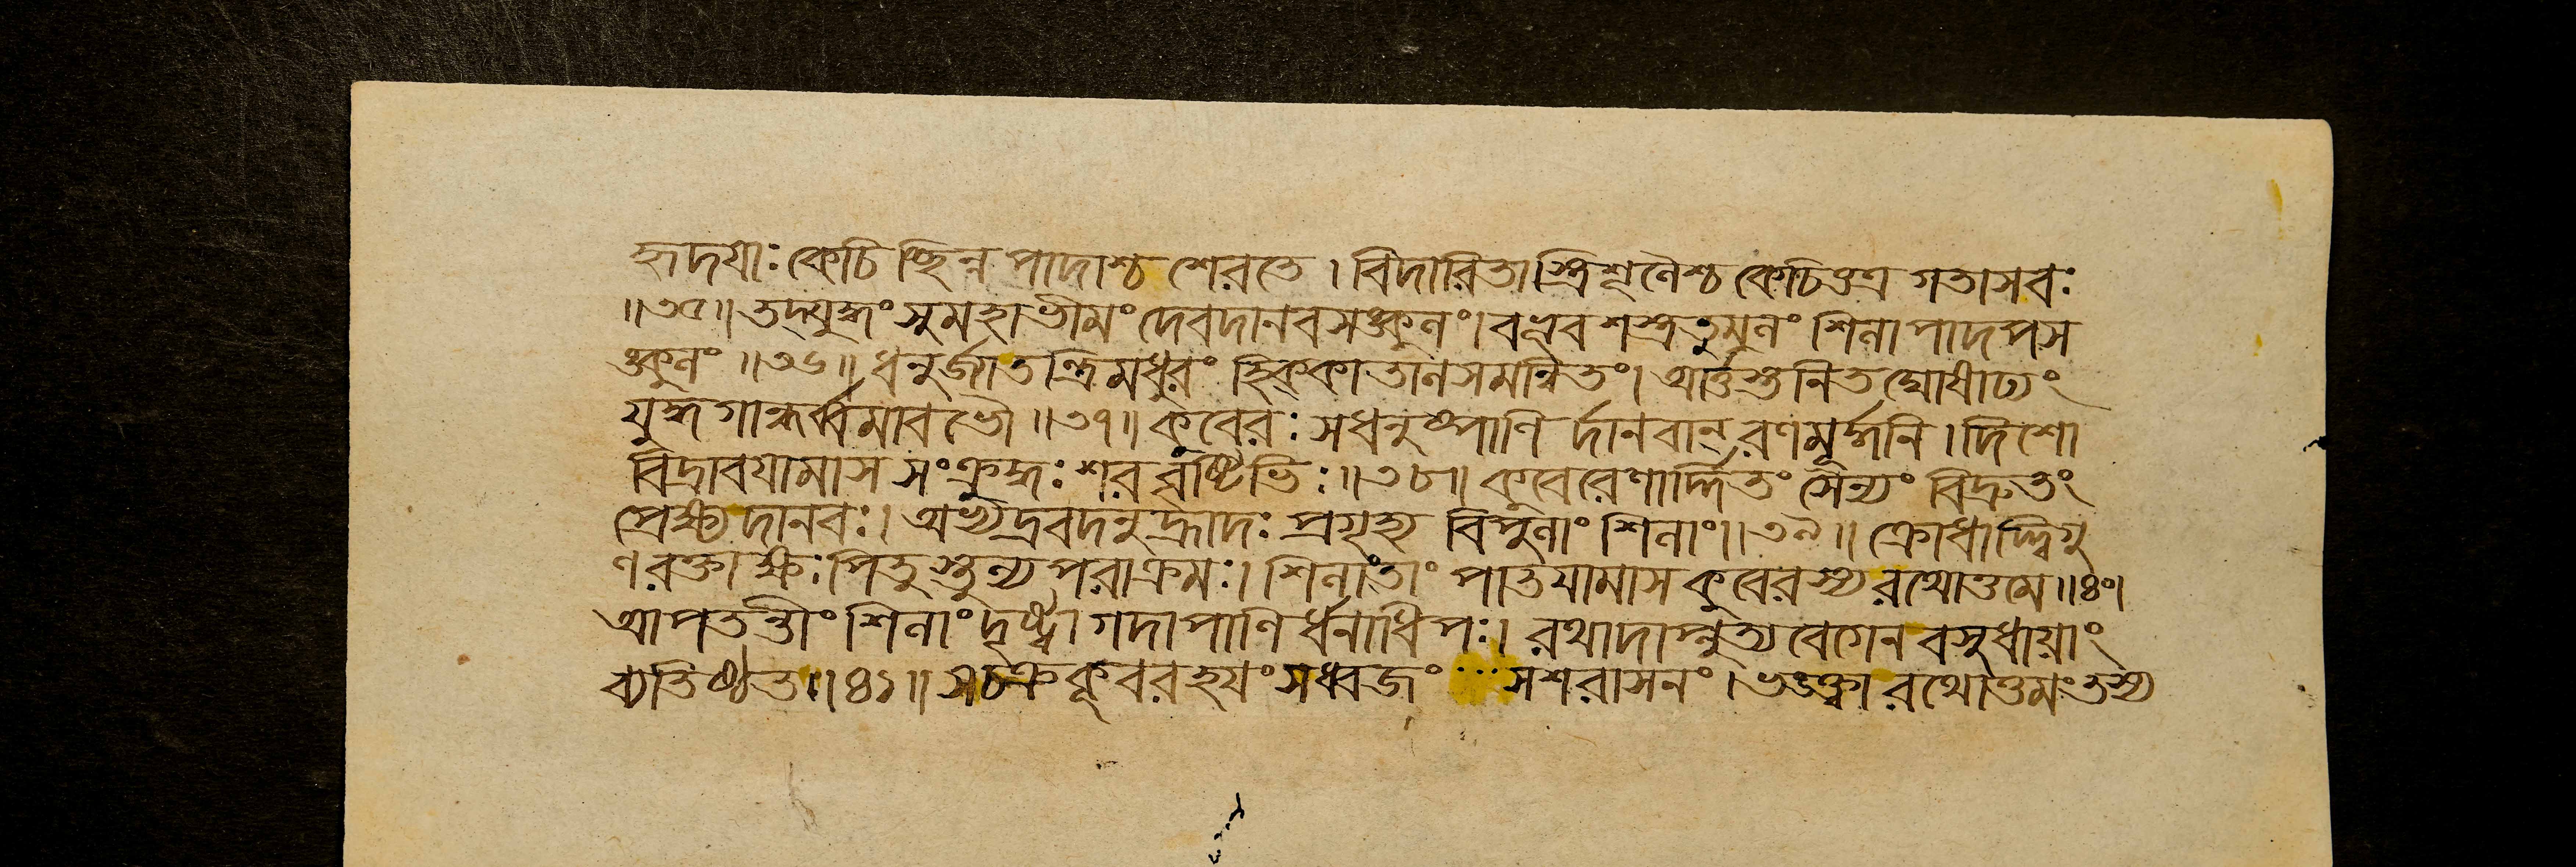 হৃদয়াঃ কেচিচ্ছিন্নপাদাশ্চ শেরতে । বিদারিতাস্ত্রিশূলৈশ্চ কেচিত্তত্র গতাসবঃ
॥৩৫॥ তদ্যুদ্ধং সুমহাভীমং দেবদানবসঙ্কুলং। বভূব শস্ত্রতুমুলং শিলাপাদপস
ঙ্কুলং ॥৩৬॥ ধনুর্জ্যাতন্ত্রিমধুরং হিক্কাতালসমন্বিতং। আর্ত্তস্তনিতঘোষাঢ্যং
যুদ্ধগান্ধর্ব্বমাবভৌ ॥৩৭॥ কুবেরঃ সধনুষ্পাণির্দানবান্ রণমূর্দ্ধনি । দিশো
বিদ্রাবয়ামাস সংক্রুদ্ধঃ শরবৃষ্টিভিঃ ॥৩৮॥ কুবেরেণার্দ্দিতং সৈন্যং বিদ্রুতং
প্রেক্ষ্য দানবঃ। অভ্যদ্রবদনুহ্রাদঃ প্রগৃহ্য বিপুলাং শিলাং॥৩৯॥ ক্রোধাদ্দ্বিগু
ণরক্তাক্ষঃ পিতুস্তুল্যপরাক্রমঃ। শিলাং তাং পাতয়ামাস কুবেরস্য রথোত্তমে ॥৪০॥
আপতন্তীং শিলাং দৃষ্ট্বা গদাপাণির্ধনাধিপঃ। রথাদাপ্লুত্য বেগেন বসুধায়াং
ব্যতিষ্ঠত ॥৪১॥ সচক্রকূবরহয়ং সধ্বজং ... সশরাসনং । ভঙ্ক্ত্বা রথোত্তমং তস্য